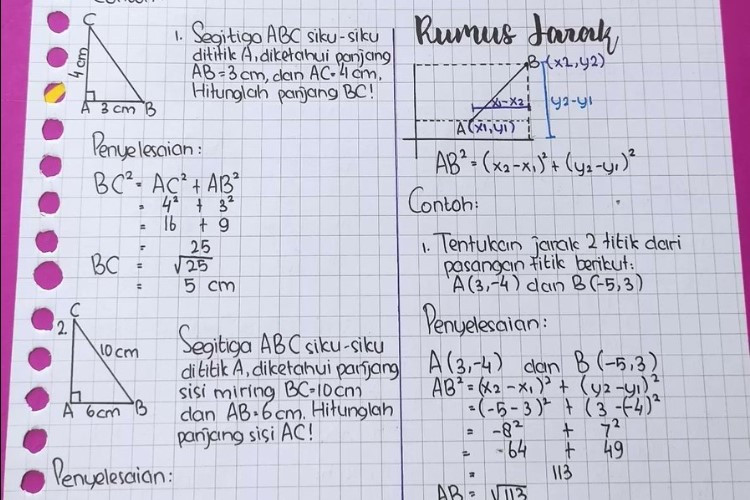 Contoh
C
4 cm
A 3 cm B
1. Segitiga ABC siku-siku
dititik A, diketahui panjang
AB = 3 cm, dan AC = 4 cm.
Hitunglah panjang BC!
Penyelesaian:
BC² = AC² + AB²
= 4² + 3²
= 16 + 9
= 25
BC = √25
= 5 cm
2.
C
10 cm
A 6 cm B
Segitiga ABC siku-siku
dititik A, diketahui panjang
sisi miring BC = 10 cm
dan AB = 6 cm. Hitunglah
panjang sisi AC!
Penyelesaian:
Rumus Jarak
B (x2, y2)
x1-x2
y2-y1
A (x1, y1)
AB² = (x2-x1)² + (y2-y1)²
Contoh:
1. Tentukan jarak 2 titik dari
pasangan titik berikut:
A (3,-4) dan B (-5,3)
Penyelesaian:
A (3,-4) dan B (-5,3)
AB² = (x2-x1)² + (y2-y1)²
= (-5-3)² + (3-(-4)²
= -8² + 7²
= -64 + 49
= 113
AB = √113